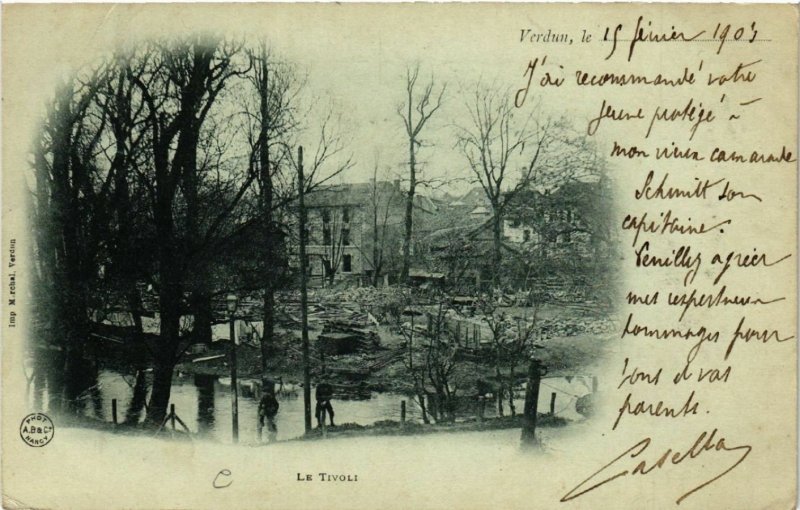 Verdun, le 15 février 1903
J'ai recommandé votre
jeune protégé à
mon vieux camarade
Schmitt son
capitaine.
Veuillez agréer
mes respectueux
hommages pour
vous et vos
parents.
Imp. Marchal, Verdun
PHOT.
A.B & Cie
NANCY
LE TIVOLI